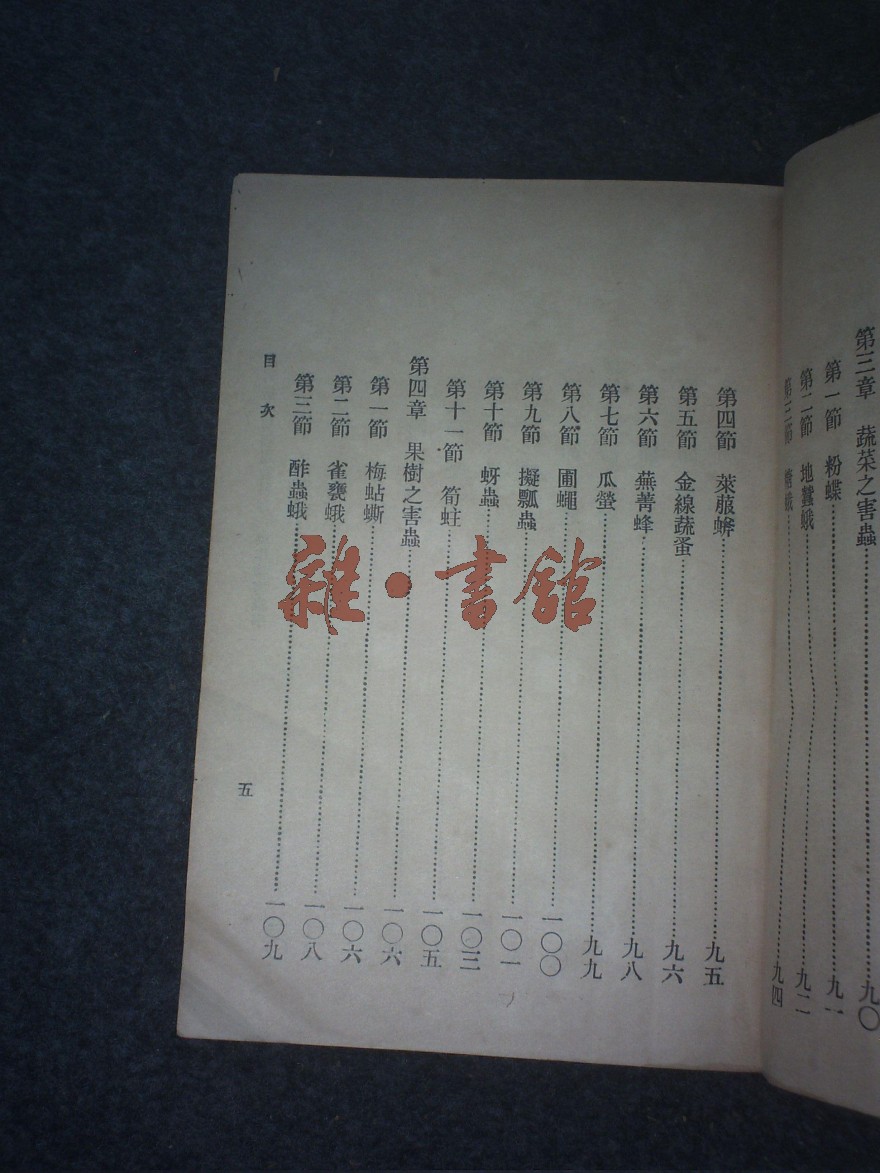 第三章 蔬菜之害蟲……九〇
第一節 粉蝶……九一
第二節 地蠶蛾……九二
第三節 蛾……九四
第四節 萊菔蛴……九五
第五節 金線蔬蚤……九六
第六節 蕪菁蜂……九八
第七節 瓜螢……九九
第八節 圃蠅……一〇〇
第九節 擬瓢蟲……一〇一
第十節 蚜蟲……一〇三
第十一節 筍蛀……一〇五
第四章 果樹之害蟲……一〇六
第一節 梅蛅蟴……一〇六
第二節 雀甕蛾……一〇八
第三節 酢蟲蛾……一〇九
目次
五
雜·書館